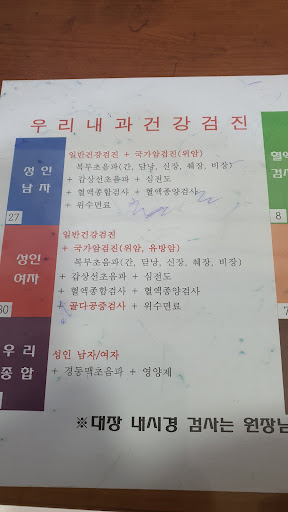 우리내과건강검진
성인
남자
27
일반건강검진 + 국가암검진(위암)
복부초음파(간, 담낭, 신장, 췌장, 비장)
+ 갑상선초음파 + 심전도
+ 혈액종합검사 + 혈액종양검사
+ 위수면료
혈액
검사
8
성인
여자
30
일반건강검진
+ 국가암검진(위암, 유방암)
복부초음파(간, 담낭, 신장, 췌장, 비장)
+ 갑상선초음파 + 심전도
+ 혈액종합검사 + 혈액종양검사
+ 골다공증검사 + 위수면료
7
우리
종합
성인 남자/여자
+ 경동맥초음파 + 영양제
※대장 내시경 검사는 원장님